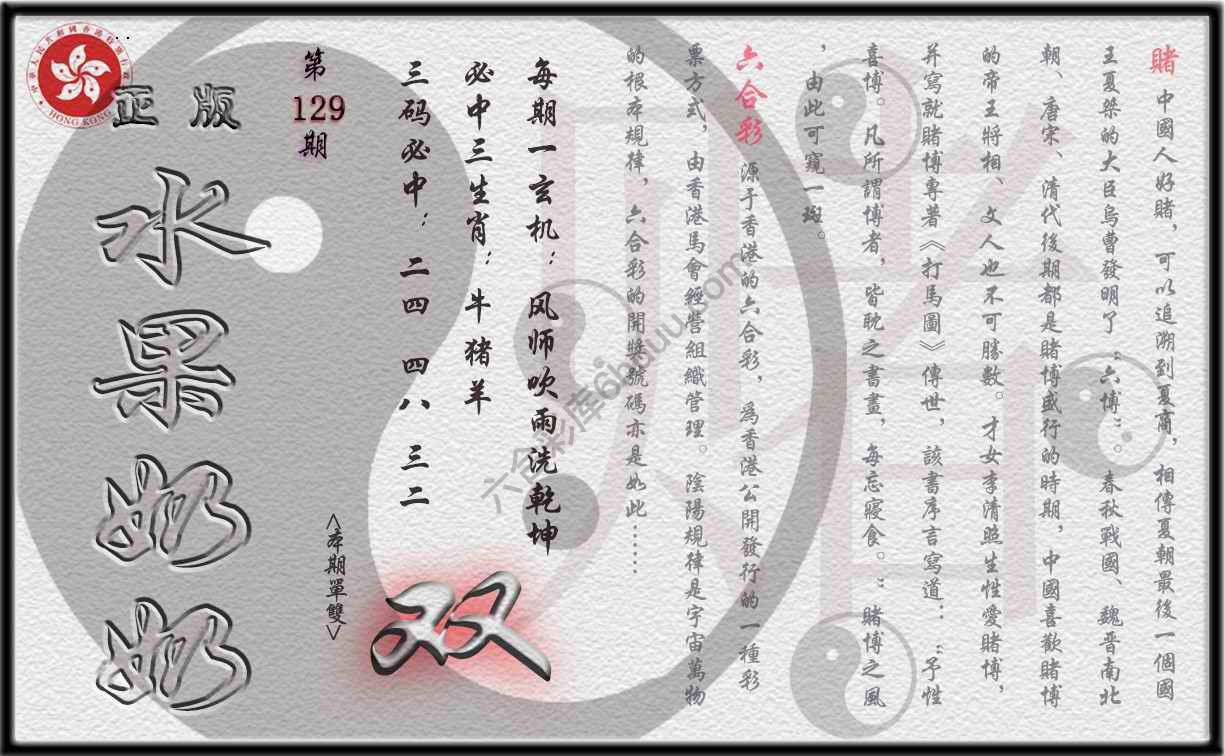 賭 中國人好賭，可以追溯到夏商，相傳夏朝最後一個國
王夏桀的大臣烏曹發明了“六博”。春秋戰國、魏晋南北
朝、唐宋、清代後期都是賭博盛行的時期，中國喜歡賭博
的帝王將相、文人也不可勝數。才女李清照生性愛賭博，
并寫就賭博專著《打馬圖》傳世，該書序言寫道：：“予性
喜博。凡所謂博者，皆耽之書畫，每忘寢食。：賭博之風
，由此可窺一斑。
六合彩 源于香港的六合彩，爲香港公開發行的一種彩
票方式，由香港馬會經營組織管理。陰陽規律是宇宙萬物
的根本規律，六合彩的開獎號碼亦是如此……
每期一玄机：风师吹雨洗乾坤
必中三生肖：牛猪羊
三码必中：二四 四八 三二
第
129
期
<本期單雙>
双
正版
水果奶奶
HONG KONG
六合彩库6hduu.com